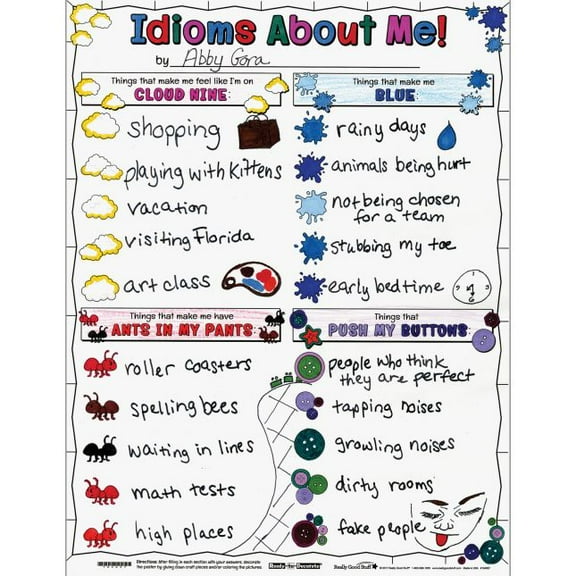 Idioms About Me!
by Abby Gora
Things that make me feel like I'm on
CLOUD NINE:
shopping
playing with kittens
vacation
visiting Florida
art class
Things that make me
BLUE:
rainy days
animals being hurt
not being chosen
for a team
stubbing my toe
early bedtime
Things that make me have
ANTS IN MY PANTS:
roller coasters
spelling bees
waiting in lines
math tests
high places
Things that
PUSH MY BUTTONS:
people who think
they are perfect
tapping noises
growling noises
dirty rooms
fake people
Directions: After filling in each section with your answers, decorate
the poster by gluing down craft pieces and/or coloring the pictures.
Ready-To-Decorate
Really Good Stuff